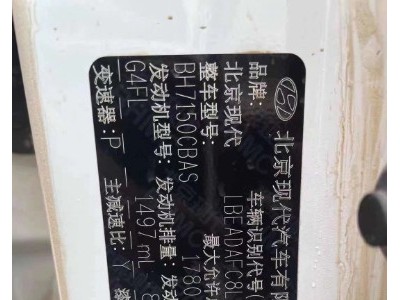 北京现代汽车有限
品牌: 车辆识别代号(
北京现代 LBEADAFC8
整车型号: 最大允许
BH7150CBAS 1780
发动机型号: 发动机排量:
G4FL 1497ml
变速器: P 主减速比: Y